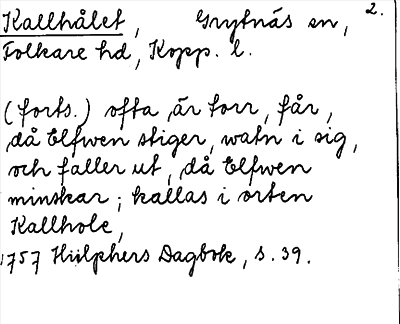 2.
Kallhålet, Grytnäs sn,
Folkare hd, Kopp. l.
(forts.) ofta är torr, får,
då Elfwen stiger, watn i sig,
och faller ut, då Elfwen
minskar; kallas i orten
Kallhole,
1757 Hülphers Dagbok, s. 39.